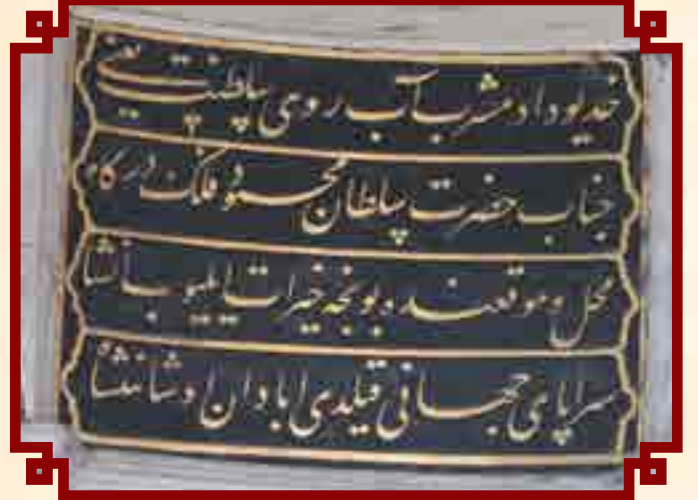 خديو داد مشرب آب روى سلطنت يعنى
جناب حضرت سلطان محمود فلك درگاه
محل و موقعنده بونجه خيرات ايليوب انشا
سراپاى جهانى قيلدى ابادان او شاهنشاه